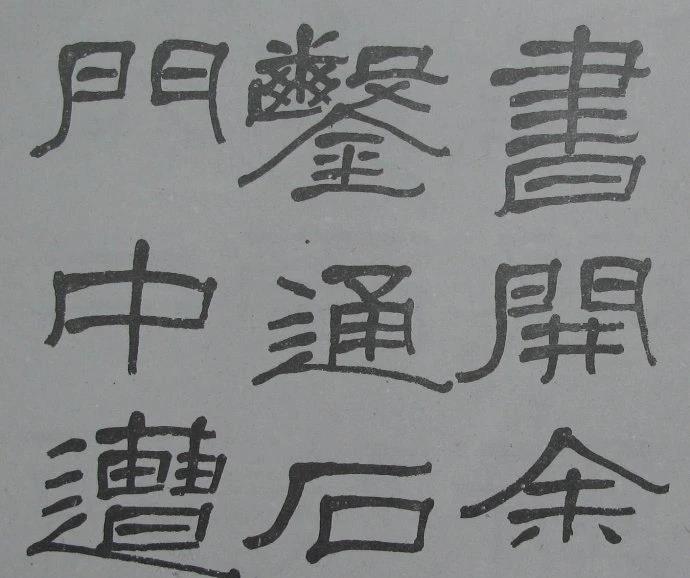 書開余
鑿通石
門中遭